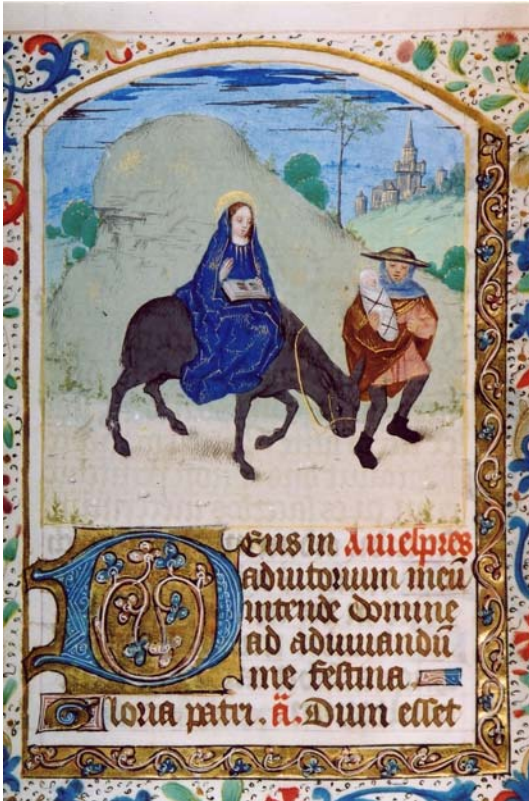 Deus in A uuespres
adiutorium meū
intende domine
ad adiuuandū
me festina
Gloria patri. ā. Dum esset